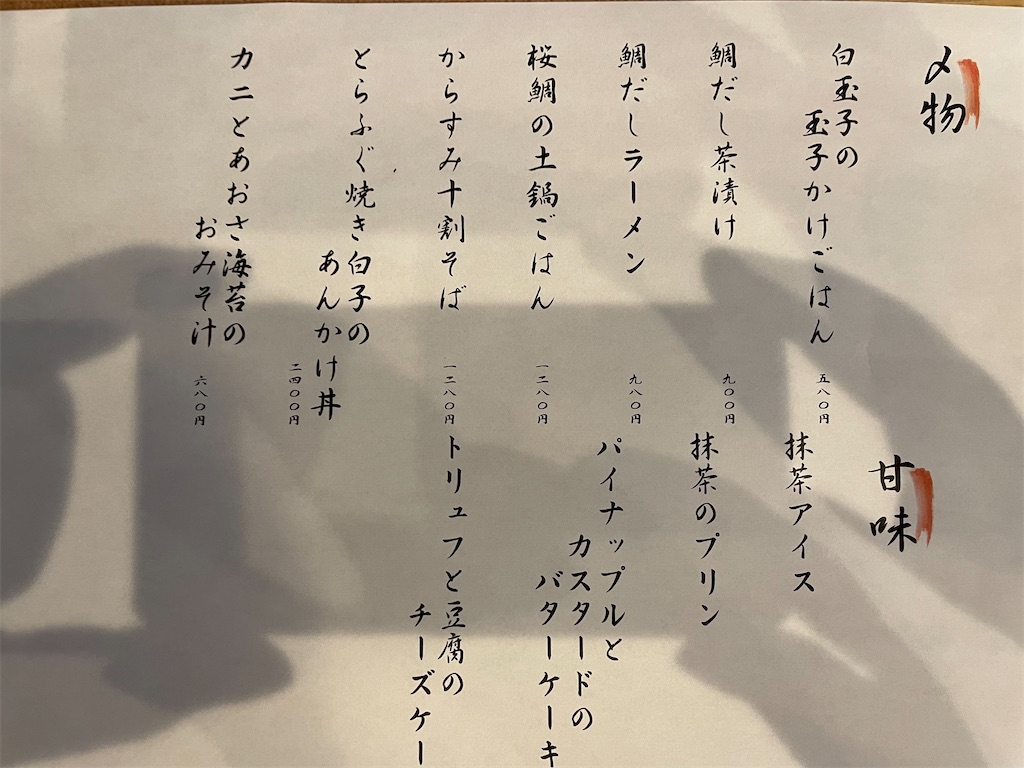 〆物
白玉子の
玉子かけごはん
五八〇円
鯛だし茶漬け
九〇〇円
鯛だしラーメン
九八〇円
桜鯛の土鍋ごはん
一二八〇円
からすみ十割そば
一二八〇円
とらふぐ焼き白子の
あんかけ丼
二四〇〇円
カニとあおさ海苔の
おみそ汁
六八〇円
甘味
抹茶アイス
抹茶のプリン
パイナップルと
カスタードの
バターケーキ
トリュフと豆腐の
チーズケー